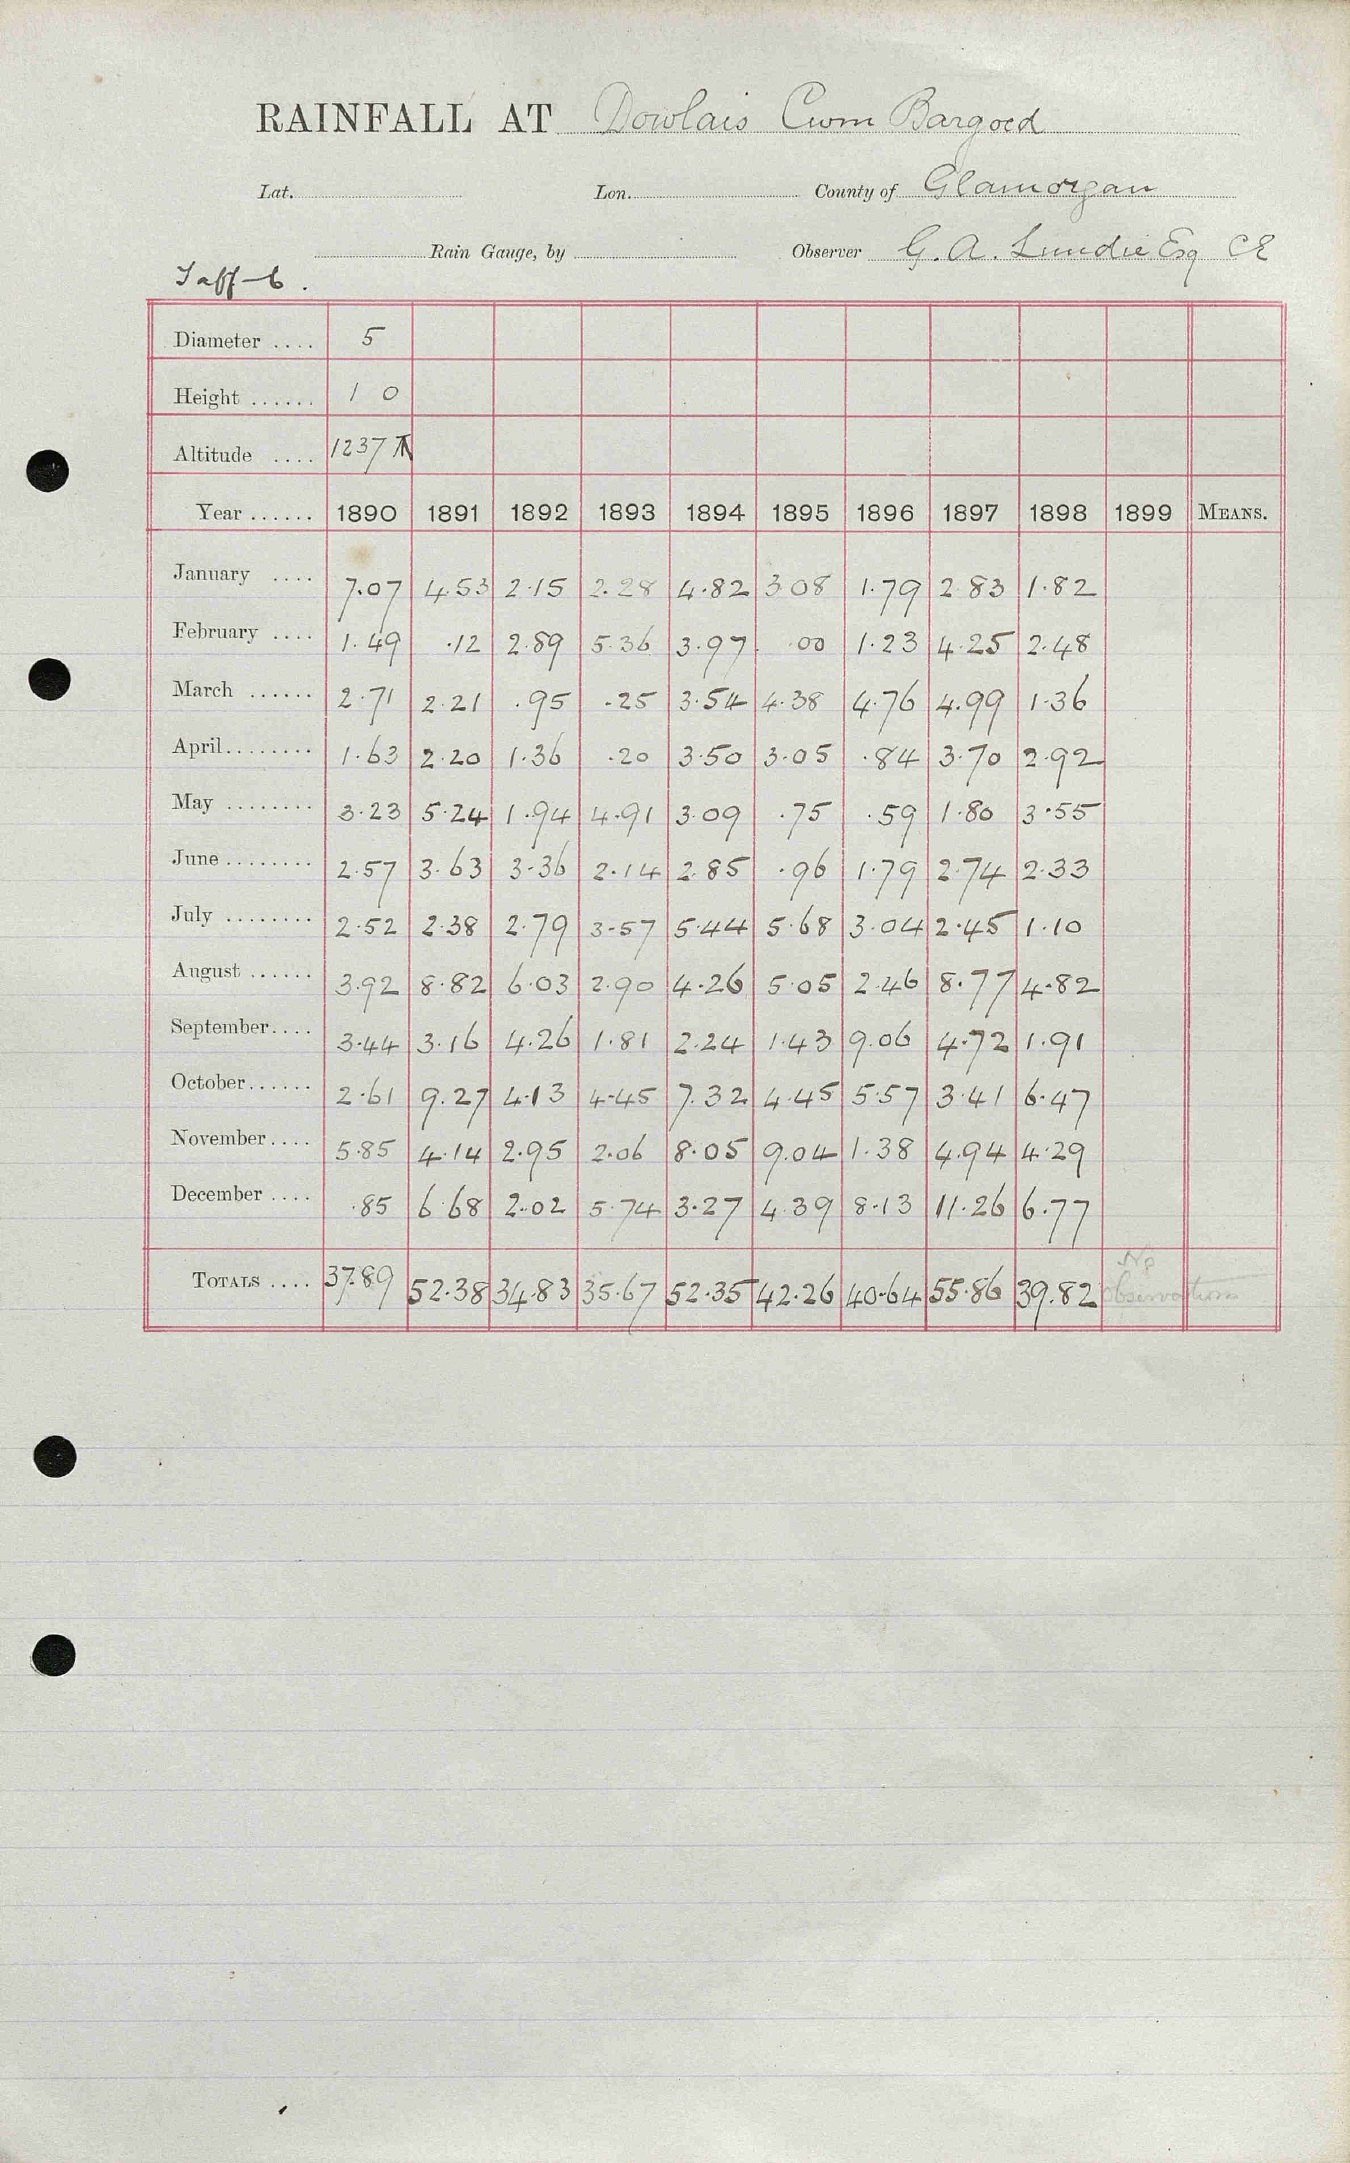 RAINFALL AT Dowlais Cwm Bargoed
Lat. Lon. County of Glamorgan
Rain Gauge, by Observer G. A. Lundie Esq CE
Taff-6.
Diameter .... 5
Height ...... 1 0
Altitude .... 1237
Year ...... 1890 1891 1892 1893 1894 1895 1896 1897 1898 1899 MEANS.
January .... 7.07 4.53 2.15 2.28 4.82 3.08 1.79 2.83 1.82
February .... 1.49 .12 2.89 5.36 3.97 .00 1.23 4.25 2.48
March ...... 2.71 2.21 .95 .25 3.54 4.38 4.76 4.99 1.36
April........ 1.63 2.20 1.36 .20 3.50 3.05 .84 3.70 2.92
May ........ 3.23 5.24 1.94 4.91 3.09 .75 .59 1.80 3.55
June........ 2.57 3.63 3.36 2.14 2.85 .96 1.79 2.74 2.33
July ........ 2.52 2.38 2.79 3.57 5.44 5.68 3.04 2.45 1.10
August ...... 3.92 8.82 6.03 2.90 4.26 5.05 2.46 8.77 4.82
September.... 3.44 3.16 4.26 1.81 2.24 1.43 9.06 4.72 1.91
October...... 2.61 9.27 4.13 4.45 7.32 4.45 5.57 3.41 6.47
November.... 5.85 4.14 2.95 2.06 8.05 9.04 1.38 4.94 4.29
December .... .85 6.68 2.02 5.74 3.27 4.39 8.13 11.26 6.77
TOTALS .... 37.89 52.38 34.83 35.67 52.35 42.26 40.64 55.86 39.82 No
observations